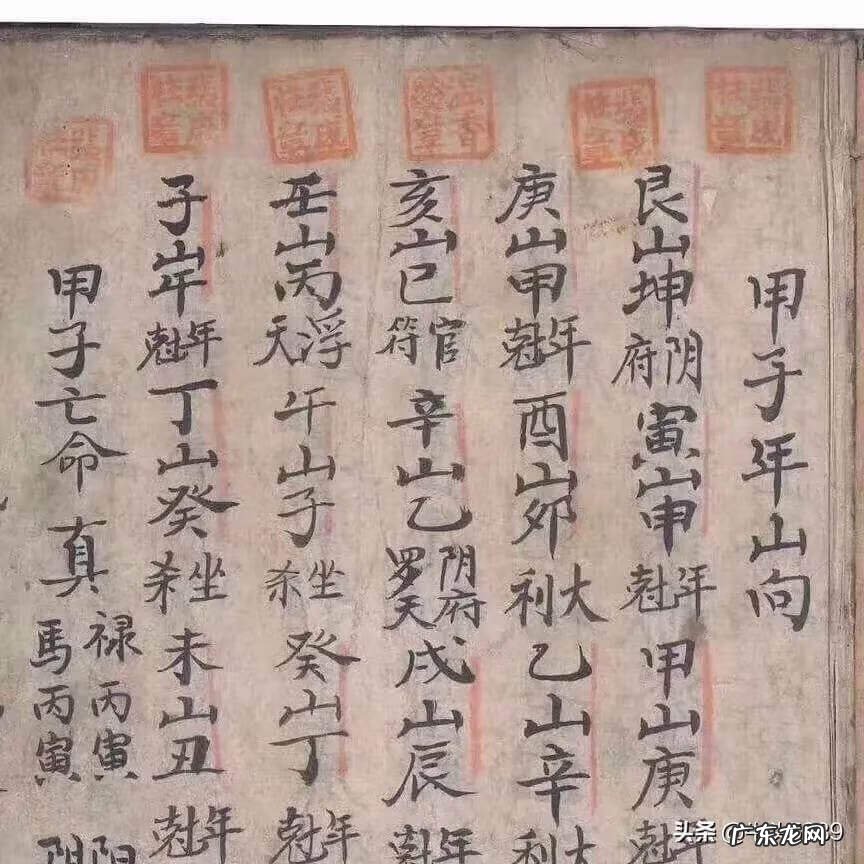 甲子年山向
艮山坤 阴府 寅山申 年尅 甲山庚 年尅
庚山甲 年尅 酉山卯 大利 乙山辛 大利
亥山巳 官符 辛山乙 阴府罗天 戌山辰 年尅
壬山丙 浮天 午山子 坐杀 癸山丁 年尅
子山午 年尅 丁山癸 坐杀 未山丑 年尅
甲子亡命 真 禄丙寅 馬丙寅 阳 阴
头条 @
广东龙网